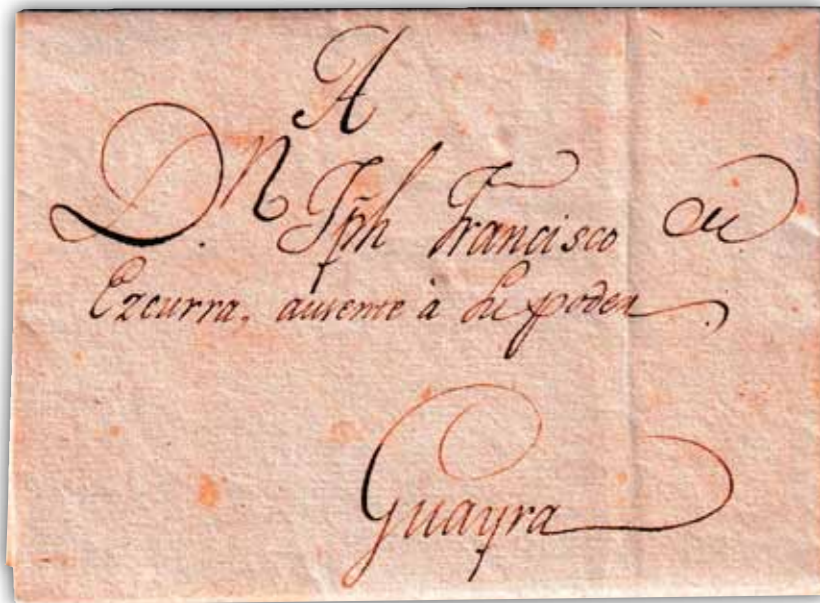 A
Dn. Jph Francisco de
Ezcurra, ausente à su poder.
Guayra